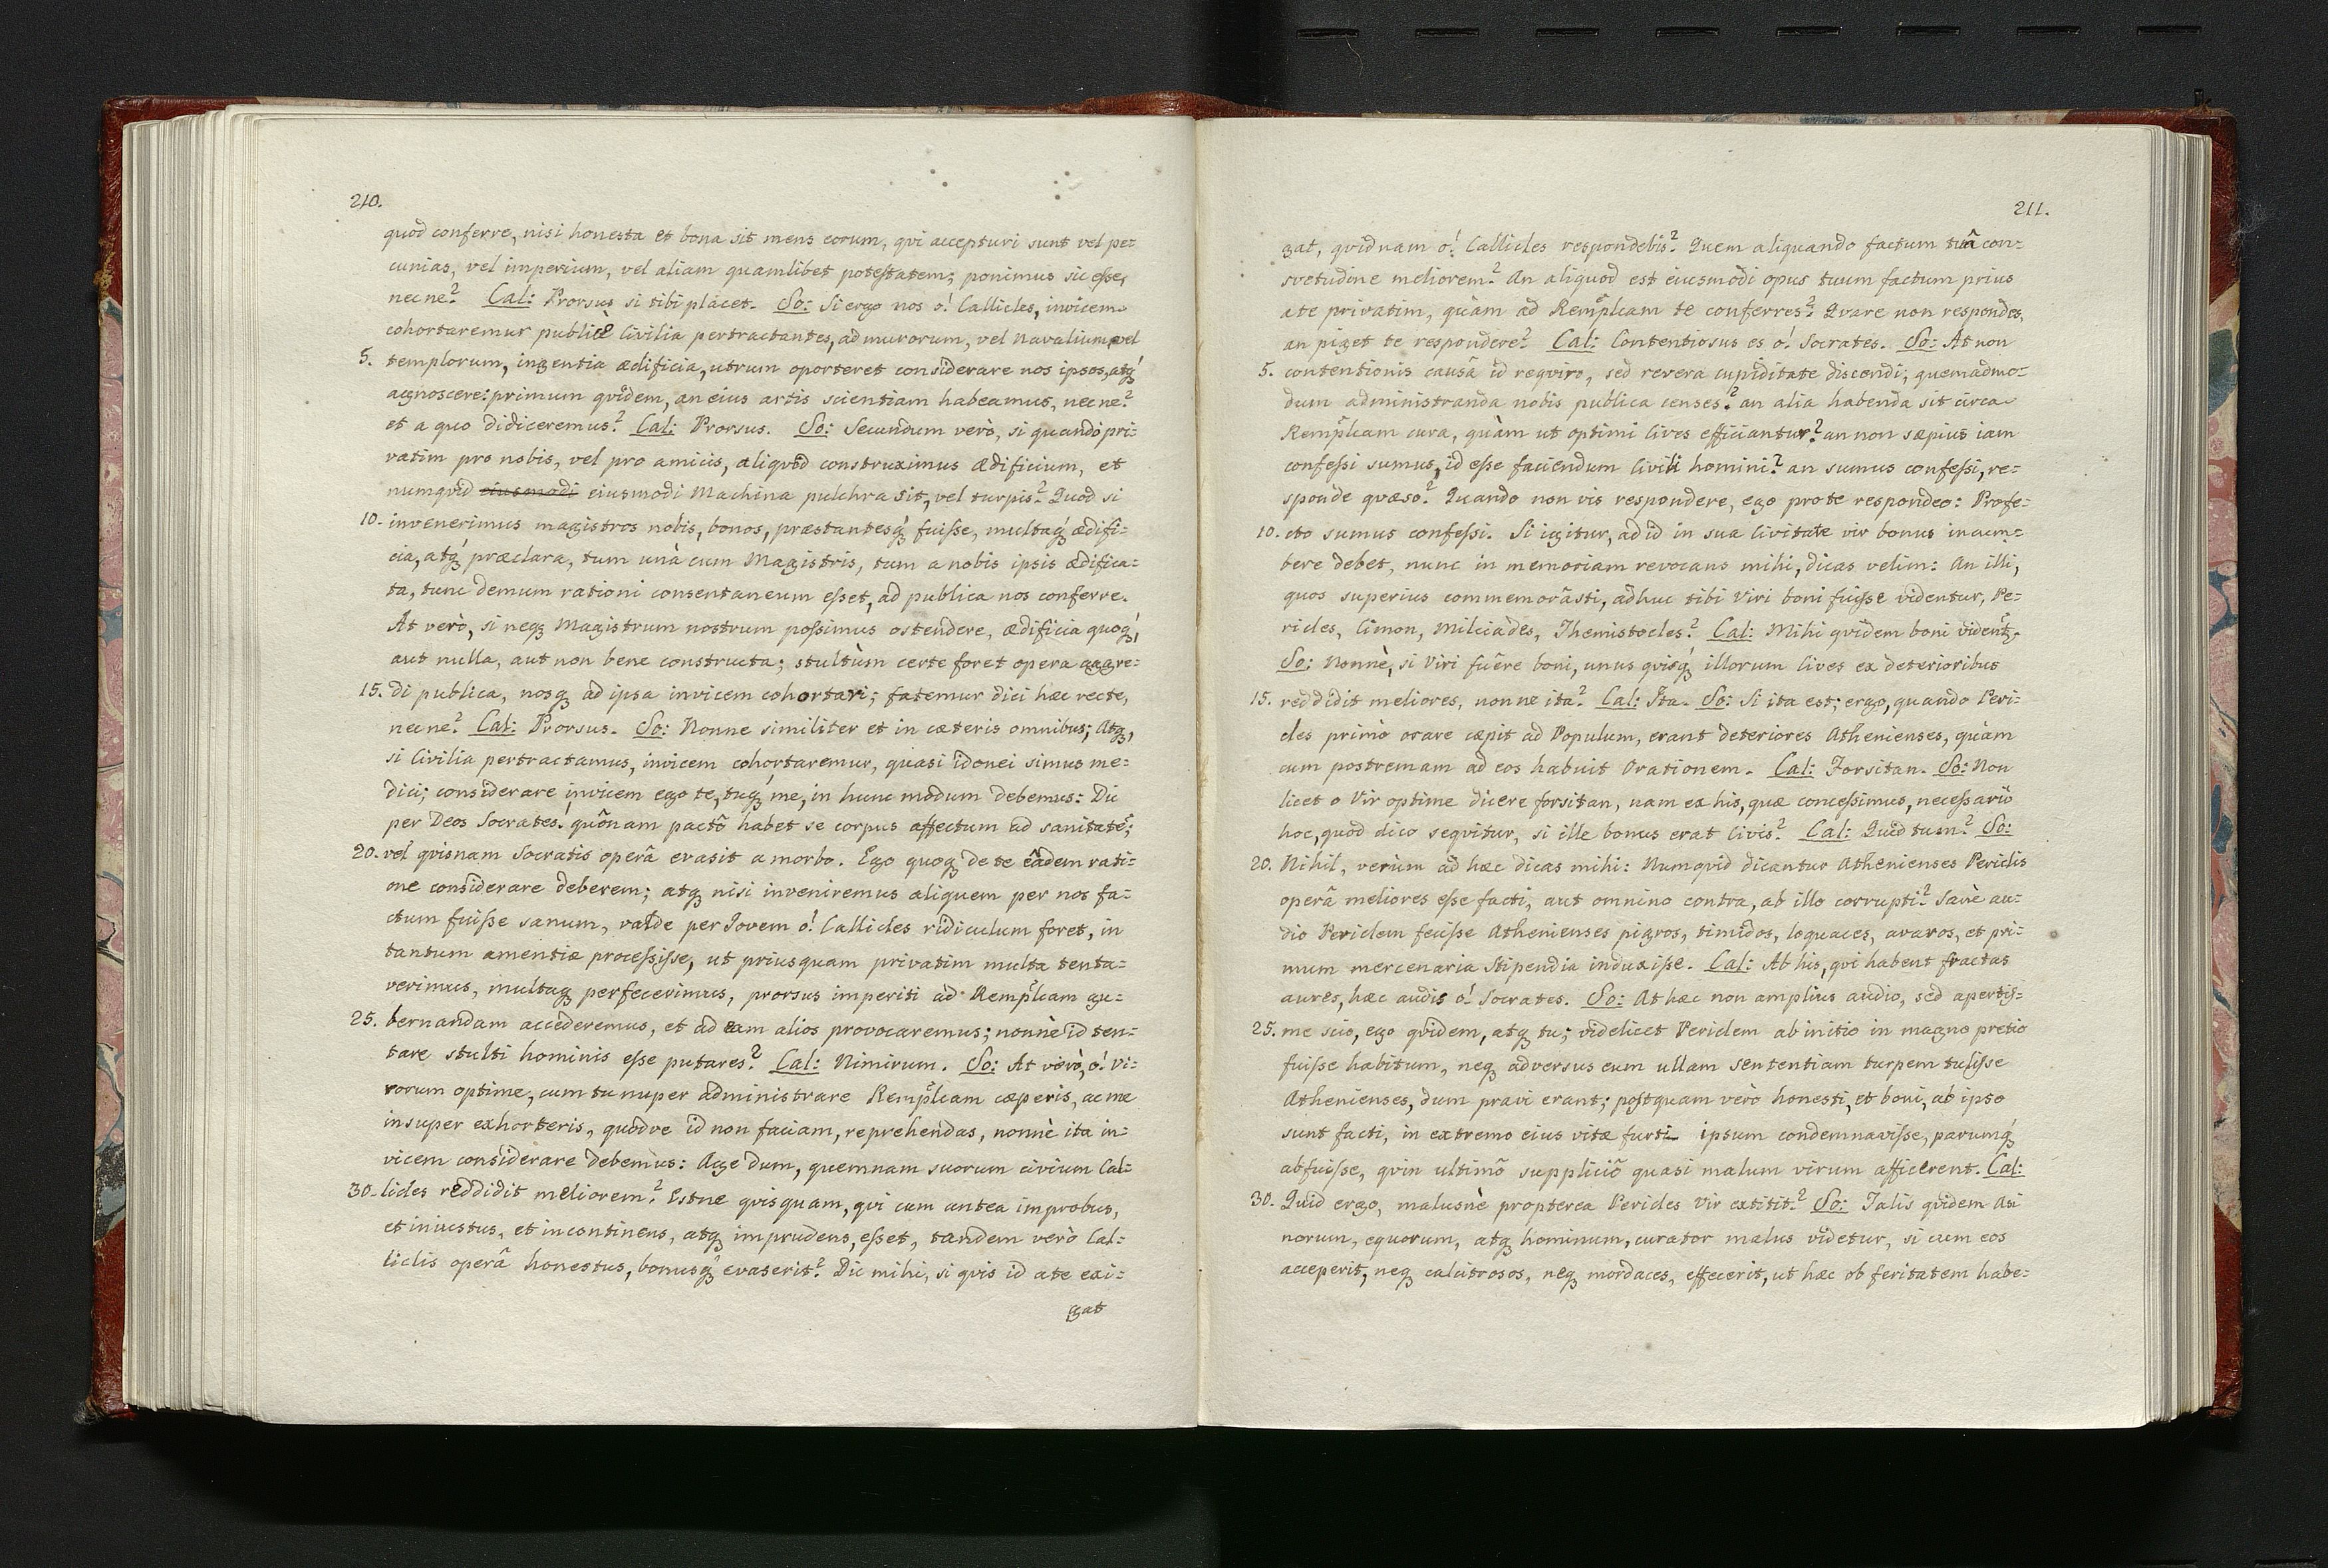 210.
quod conferre, nisi honesta et bona sit mens eorum, qvi accepturi sunt vel pe=
cunias, vel imperium, vel aliam quamlibet potestatem; ponimus sic esse,
nec ne? Cal: Prorsus si tibi placet. So: Si ergo nos ó! Callicles, invicem
cohortaremur publicè Civilia pertractantes, ad murorum, vel Navalium, vel
5. templorum, ingentia ædificia, utrum oporteret considerare nos ipsos, atq́
agnoscere: primum qvidem, an eius artis scientiam habeamus, nec ne?
et a quo didiceremus? Cal: Prorsus. So: Secundum verò, si quando pri=
vatim pro nobis, vel pro amicis, aliqvod construximus ædificium, et
numqvid eiusmodi eiusmodi Machina pulchra sit, vel turpis? Quod si
10. invenerimus magistros nobis, bonos, præstantesq́ fuisse, multaq́ ædifi=
cia, atq́ præclara, tum unà cum Magistris, tum a nobis ipsis ædifica=
ta, tunc demum rationi consentaneum esset, ad publica nos conferre.
At verò, si neq Magistrum nostrum possimus ostendere, ædificia quoq́,
aut nulla, aut non bene constructa; stultùm certe foret opera aggre=
15. di publica, nosq ad ipsa invicem cohortari; fatemur dici hæc recte,
nec ne? Cal: Prorsus. So: Nonne similiter et in cæteris omnibus; Atq,
si Civilia pertractamus, invicem cohortaremur, quasi idonei simus me=
dici; considerare invicem ego te, tuq́ me, in hunc modum debemus: Dic
per Deos Socrates! quônam pactô habet se corpus affectum ad sanitatē;
20. vel qvisnam Socratis operâ evasit a morbo. Ego quoq́ de te eâdem rati=
one considerare deberem; atq nisi inveniremus aliquem per nos fa=
ctum fuisse sanum, valde per Jovem ó! Callicles ridiculum foret, in
tantum amentiæ processisse, ut priusquam privatim multa tenta=
verimus, multaq perfecerimus, prorsus imperiti ad Remp̃lcam gu=
25. bernandam accederemus, et ad eam alios provocaremus; nonnè id ten=
tare stulti hominis esse putares? Cal: Nimirum. So: At verò, ó! Vi=
rorum optime, cum tu nuper administrare Remp̃lcam cæperis, ac me
insuper exhorteris, quòdve id non faciam, reprehendas, nonnè ita in=
vicem considerare debemus: Age dum, quemnam suorum civium Cal=
30. licles reddidit meliorem? Estne qvisquam, qvi cum antea improbus,
et iniustus, et incontinens, atq imprudens, esset, tandem verò Cal=
liclis operâ honestus, bonusq́ evaserit? Dic mihi, si qvis id a te exi=
gat
211.
gat, qvidnam ó! Callicles respondebis? Quem aliquando factum tuâ con=
svetudine meliorem? An aliquod est eiusmodi opus tuum factum prius
a te privatim, quàm ad Remp̃lcam te conferres? Qvare non respondes,
an piget te respondere? Cal: Contentiosus es ó! Socrates. So: At non
5. contentionis causâ id reqviro, sed revera cupiditate discendi; quemadmo=
dum administranda nobis publica censes? an alia habenda sit circa
Remp̃lcam cura, quàm ut optimi Cives efficiantur? an non sæpius iam
confessi sumus, id esse faciendum Civili homini? an sumus confessi, re=
sponde qvæso? Quando non vis respondere, ego pro te respondeo: Profe=
10. cto sumus confessi. Si igitur, ad id in sua Civitate vir bonus incum=
bere debet, nunc in memoriam revocans mihi, dicas velim: An illi,
quos superius commemorâsti, adhuc tibi Viri boni fuisse videntur, Pe=
ricles, Cimon, Milciades, Themistocles? Cal: Mihi qvidem boni vident̃.
So: Nonnè, si Viri fuêre boni, unus qvisq́ illorum Cives ex deterioribus
15. reddidit meliores, nonne ita? Cal: Ita. So: Si ita est; ergo, quando Peri=
cles primò orare cæpit ad Populum, erant deteriores Athenienses, quàm
cum postremam ad eos habuit Orationem. Cal: Forsitan. So: Non
licet o Vir optime dicere forsitan, nam ex his, quæ concessimus, necessariò
hoc, quod dico seqvitur, si ille bonus erat Civis? Cal: Quid tum? So:
20. Nihil, verùm ad hæc dicas mihi: Numqvid dicantur Athenienses Periclis
operâ meliores esse facti, aut omnino contra, ab illo corrupti? Sanè au=
dio Periclem fecisse Athenienses pigros, timidos, loquaces, avaros, et pri=
mum mercenaria Stipendia induxisse. Cal: Ab his, qvi habent fractas
aures, hæc audis ó! Socrates. So: At hæc non amplius audio, sed apertis=
25. me scio, ego qvidem, atq tu; videlicet Periclem ab initio in magno pretio
fuisse habitum, neq adversus eum ullam Sententiam turpem tulisse
Athenienses, dum pravi erant; postquam verò honesti, et boni, ab ipso
sunt facti, in extremo eius vitæ furti ipsum condemnavisse, parumq́
abfuisse, qvin ultimô suppliciô quasi malum virum afficerent. Cal:
30. Quid ergo, malusnè propterea Pericles Vir extitit? So: Talis qvidem Asi
norum, equorum, atq hominum, curator malus videtur, si cum eos
acceperit, neq calcitrosos, neq mordaces, effecerit, ut hæc ob feritatem habe=